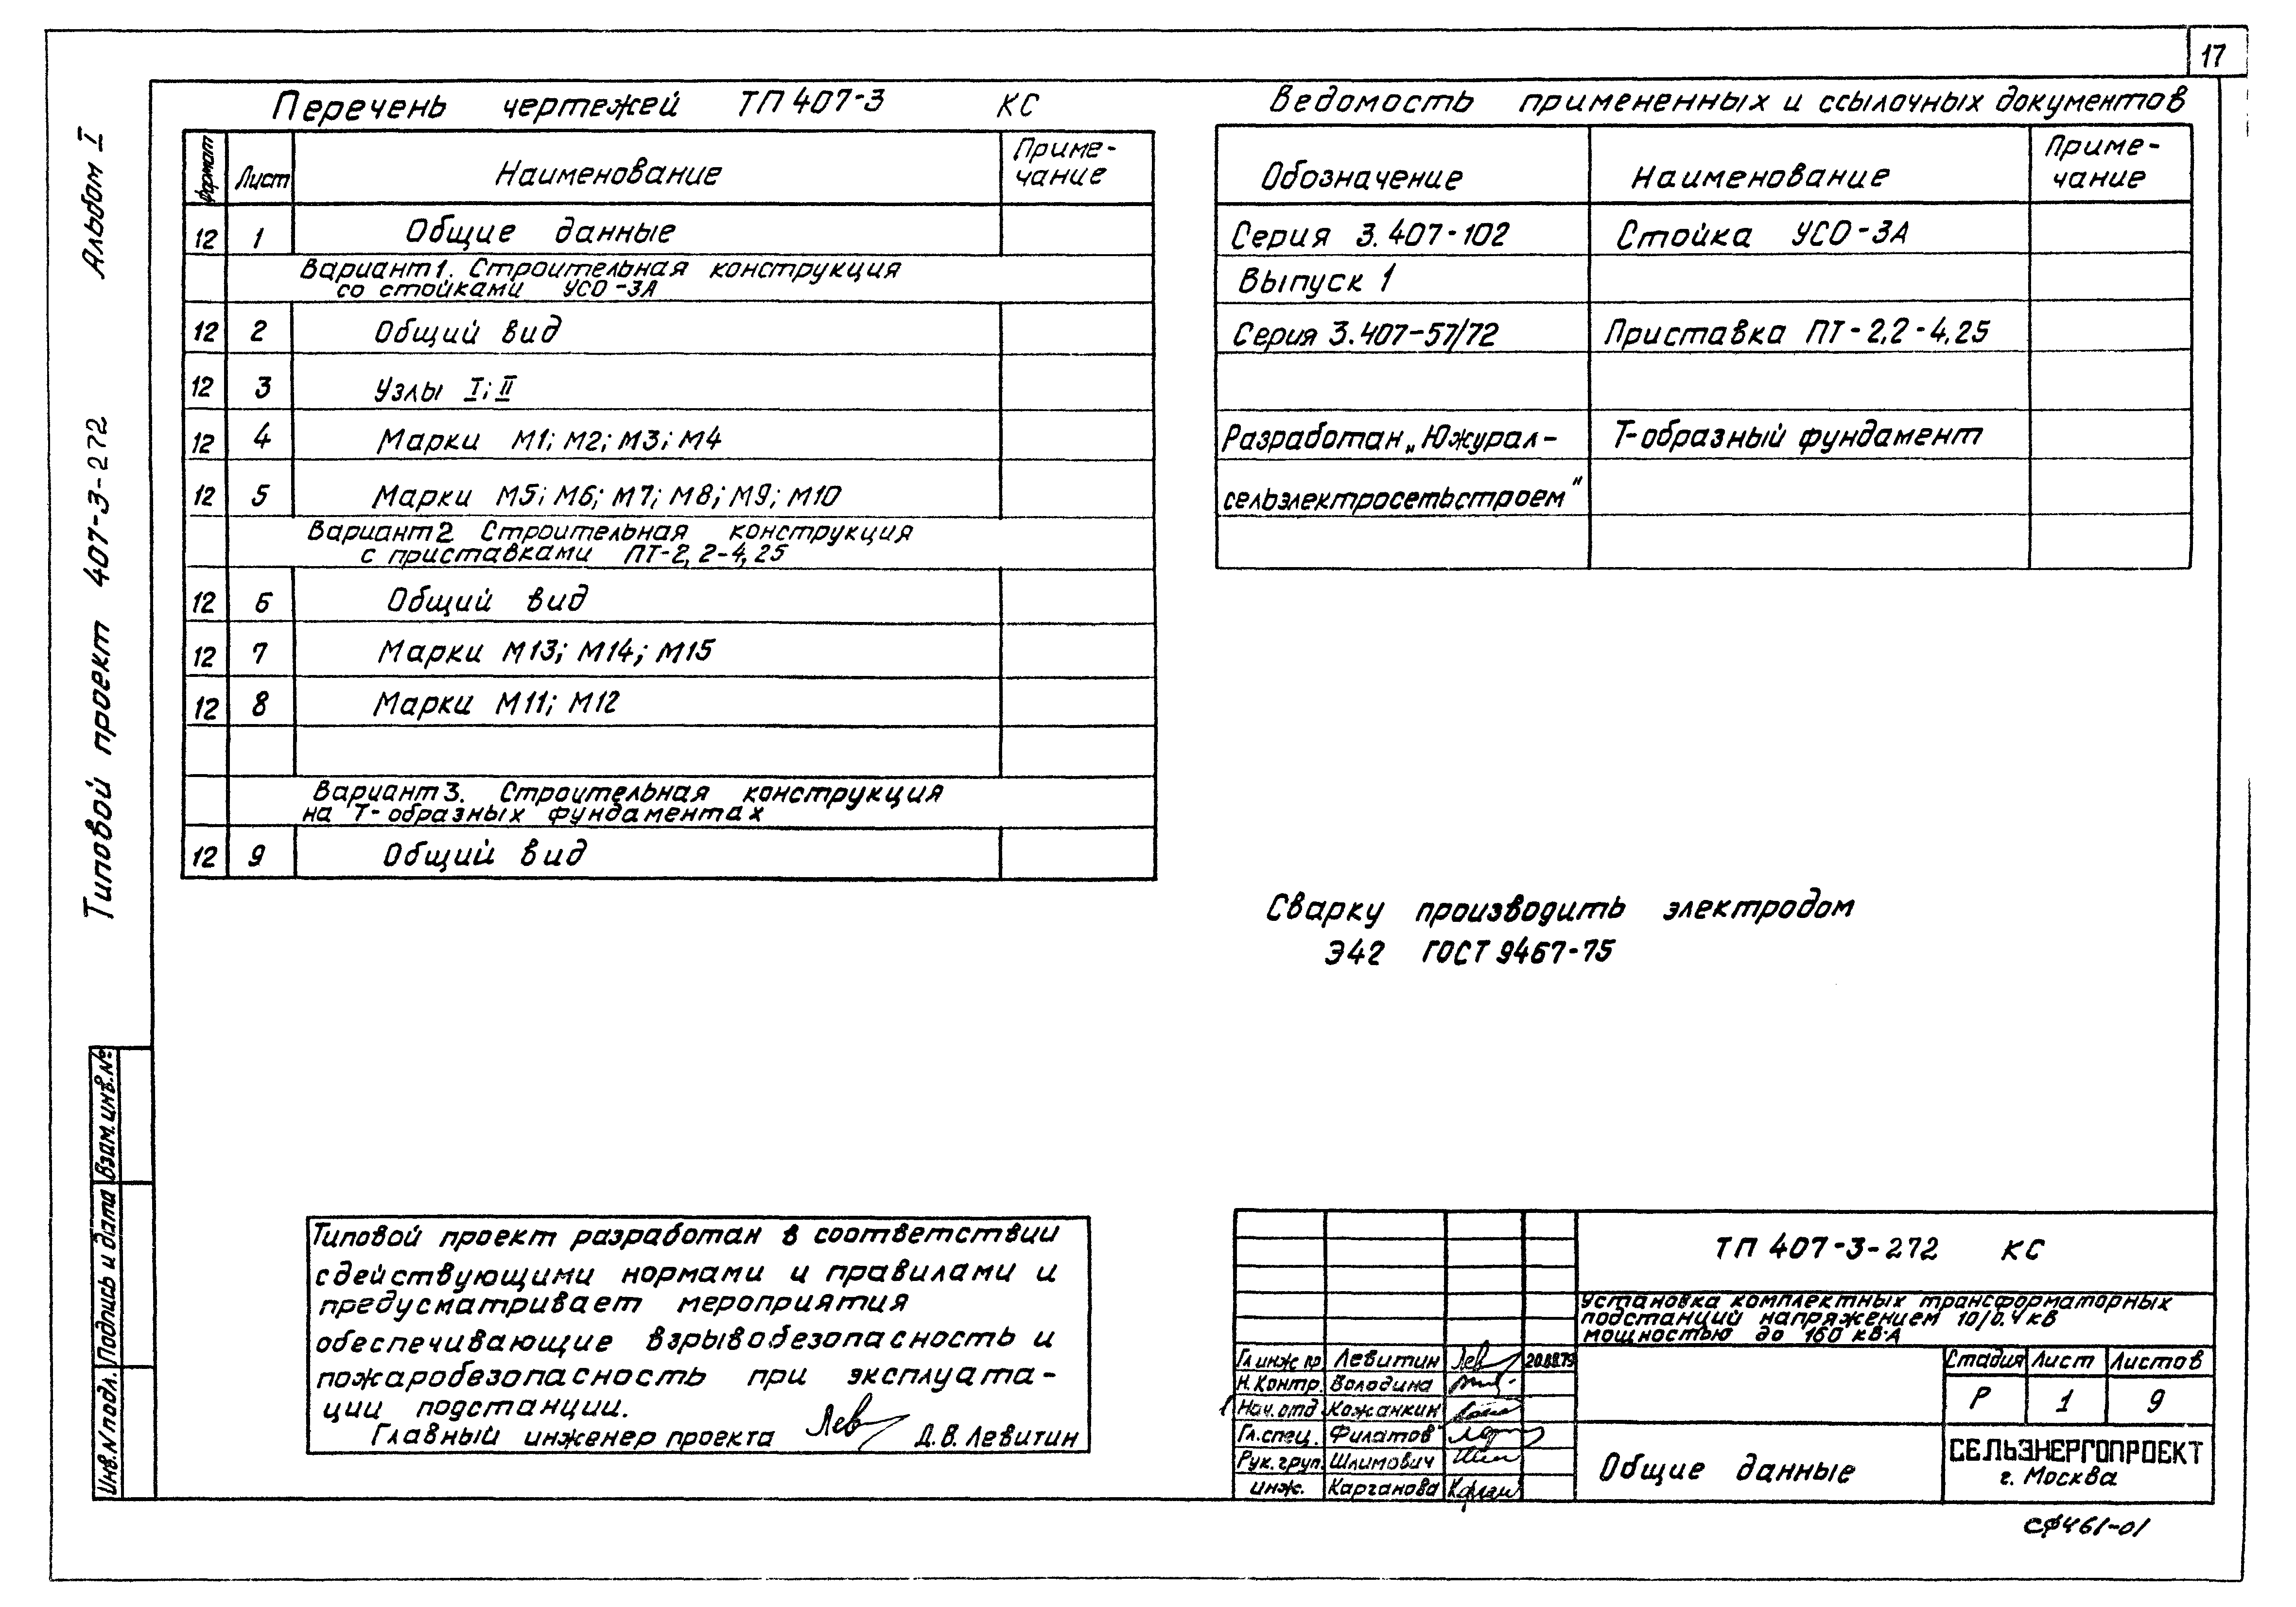 17
Альбом I
Типовой проект 407-3-272
Перечень чертежей ТП 407-3 КС
Формат Лист Наименование Приме-
чание
12 1 Общие данные
Вариант 1. Строительная конструкция
со стойками УСО-3А
12 2 Общий вид
12 3 Узлы I; II
12 4 Марки М1; М2; М3; М4
12 5 Марки М5; М6; М7; М8; М9; М10
Вариант 2 Строительная конструкция
с приставками ПТ-2,2-4,25
12 6 Общий вид
12 7 Марки М13; М14; М15
12 8 Марки М11; М12
Вариант 3. Строительная конструкция
на Т-образных фундаментах
12 9 Общий вид
Ведомость примененных и ссылочных документов
Обозначение Наименование Приме-
чание
Серия 3.407-102 Стойка УСО-3А
Выпуск 1
Серия 3.407-57/72 Приставка ПТ-2,2-4,25
Разработан „Южурал- Т-образный фундамент
сельэлектросетьстроем"
Сварку производить электродом
Э42 ГОСТ 9467-75
Взам. инв. №
Подпись и дата
Инв. N подл.
Типовой проект разработан в соответствии
с действующими нормами и правилами и
предусматривает мероприятия
обеспечивающие взрывобезопасность и
пожаробезопасность при эксплуата-
ции подстанции.
Главный инженер проекта Лев Д.В. Левитин
ТП 407-3-272 КС
Установка комплектных трансформаторных
подстанций напряжением 10/0.4 кВ
мощностью до 160 кВ·А
Гл инж пр. Левитин Лев 20.08.79
Н. Контр. Володина
1 Нач. отд. Кожанкин
Гл. спец. Филатов
Рук. груп. Шлимович
инж. Карганова
Стадия Лист Листов
Р 1 9
Общие данные
СЕЛЬЭНЕРГОПРОЕКТ
г. Москва
СФ461-01